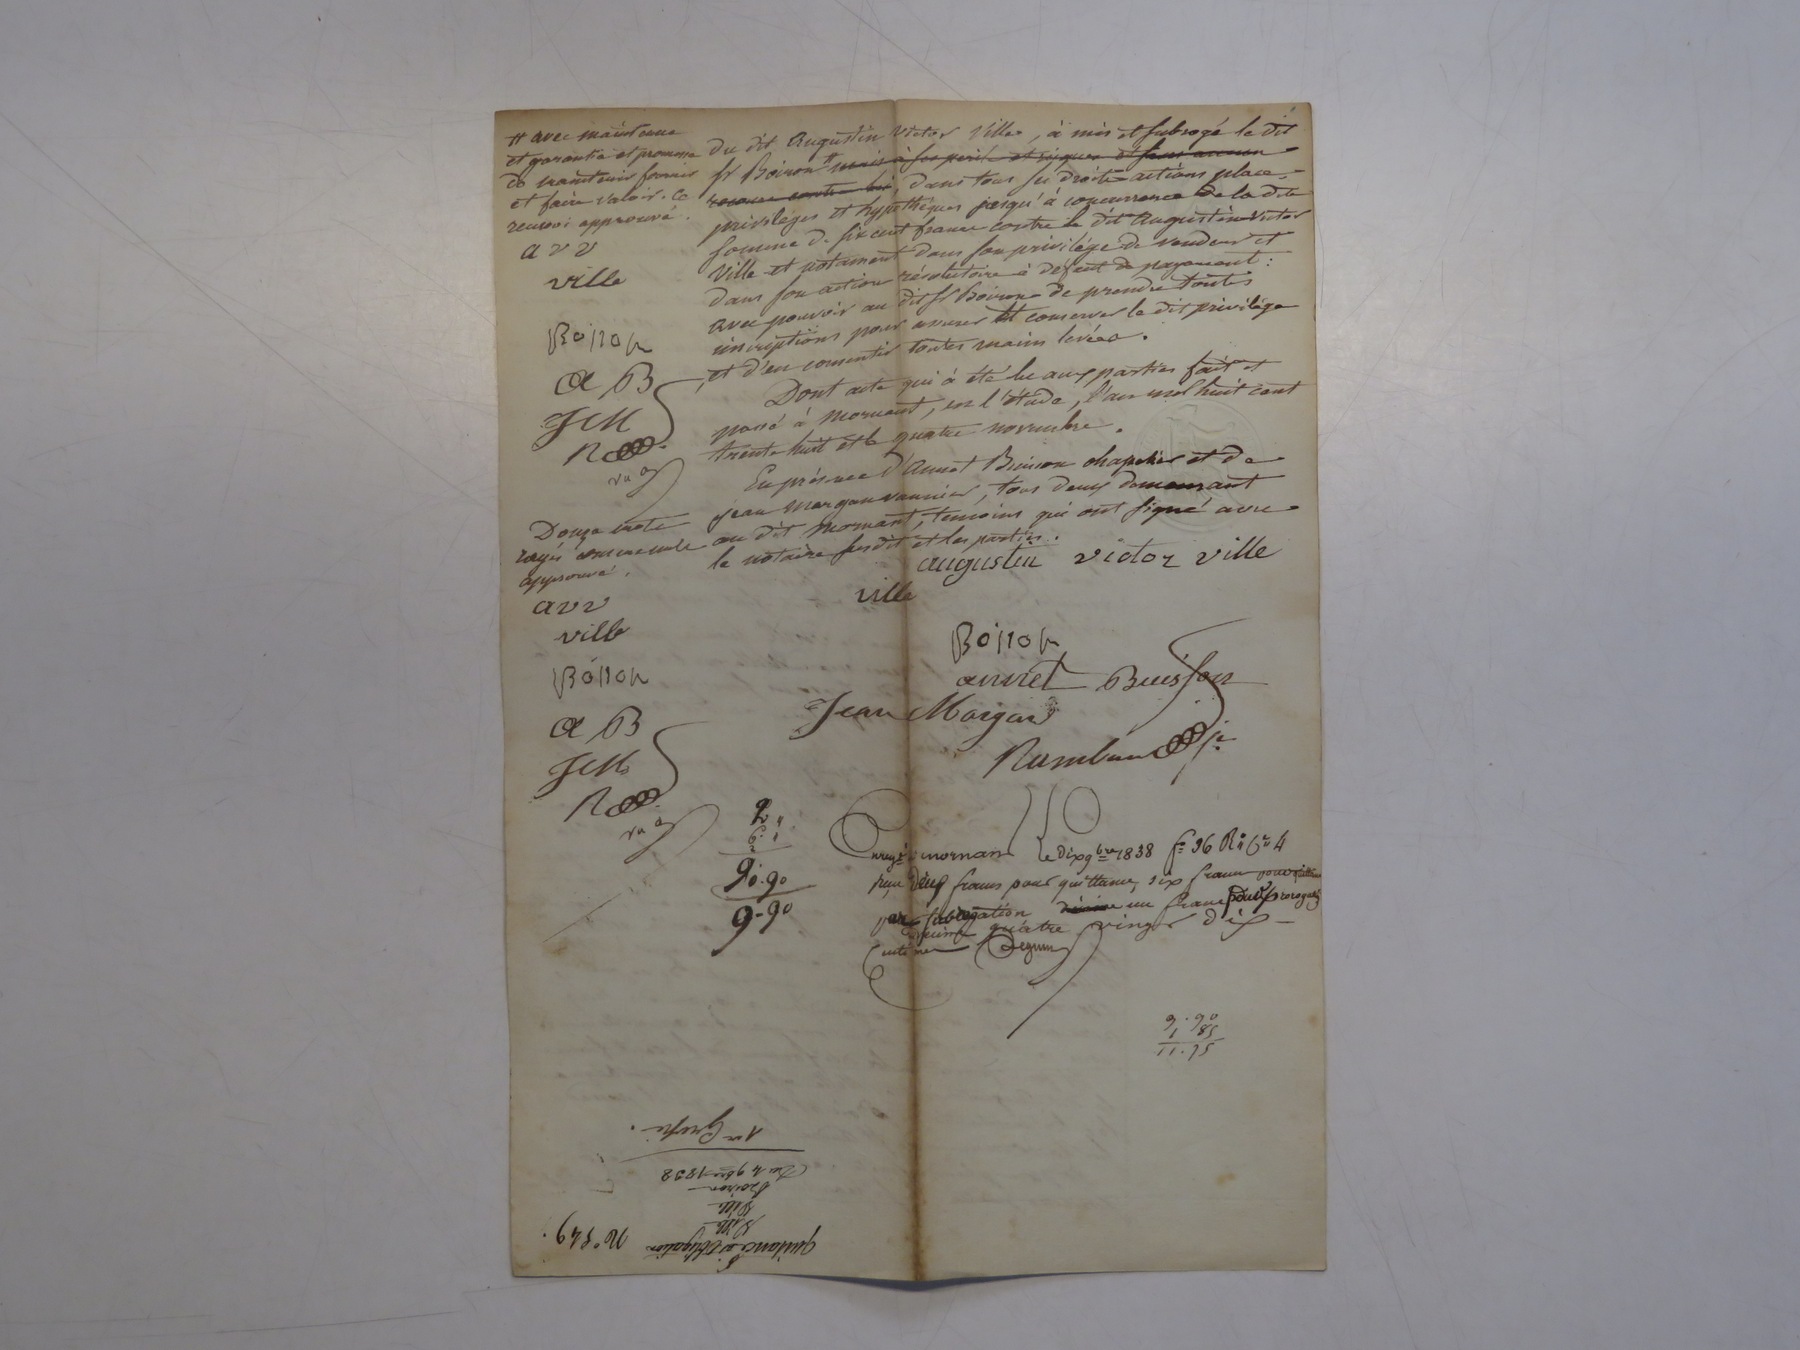 du dit Augustin Victor Ville, à mis et subrogé le dit
sr Boiron # mais à ses perils et risques et sans aucun
recours contre lui, dans tous ses droits actions place,
privilèges et hypothèques jusqu'à concurrence de la dite
somme de six cent francs contre le dit Augustin Victor
Ville et notament dans son privilége de vendeur et
dans son action résolutoire à défaut de payement :
avec pouvoir au dit sr Boiron de prendre toutes
inscriptions pour assurer et conserver le dit privilége
et d'en consentir toutes mains levées.
Dont acte qui à été lu aux parties fait et
passé à Mornant, en l'étude, l'an mil huit cent
trente huit et le quatre novembre.
En présence d'Annet Buisson chapelier et de
jean Morgan vannier, tous deux demeurant
au dit Mornant, temoins qui ont signé avec
le notaire susdit et les parties.
augustin victor ville
ville
Boiron
annet Buisson
Jean Morgan
# avec maintenue
et garantie et promesse
de maintenir fournir
et faire valoir. Ce
renvoi approuvé.
a v v
ville
Boiron
a B
J M
R
Douze mots
rayés comme nuls
approuvé.
a v v
ville
Boiron
a B
J M
R
2 "
6 "
1
90.90
9-90
Enregé à mornant le dix 9bre 1838 f° 96 R°
pour deux francs pour quittance, six francs pour
par subrogation décime un franc pour
décime quatre vingt dix
centimes
9.90
1 85
11.75
N° 549.
quittance et Obligation
Ville
Ville
Boiron
Du 4 9bre 1838
1re Grosse.